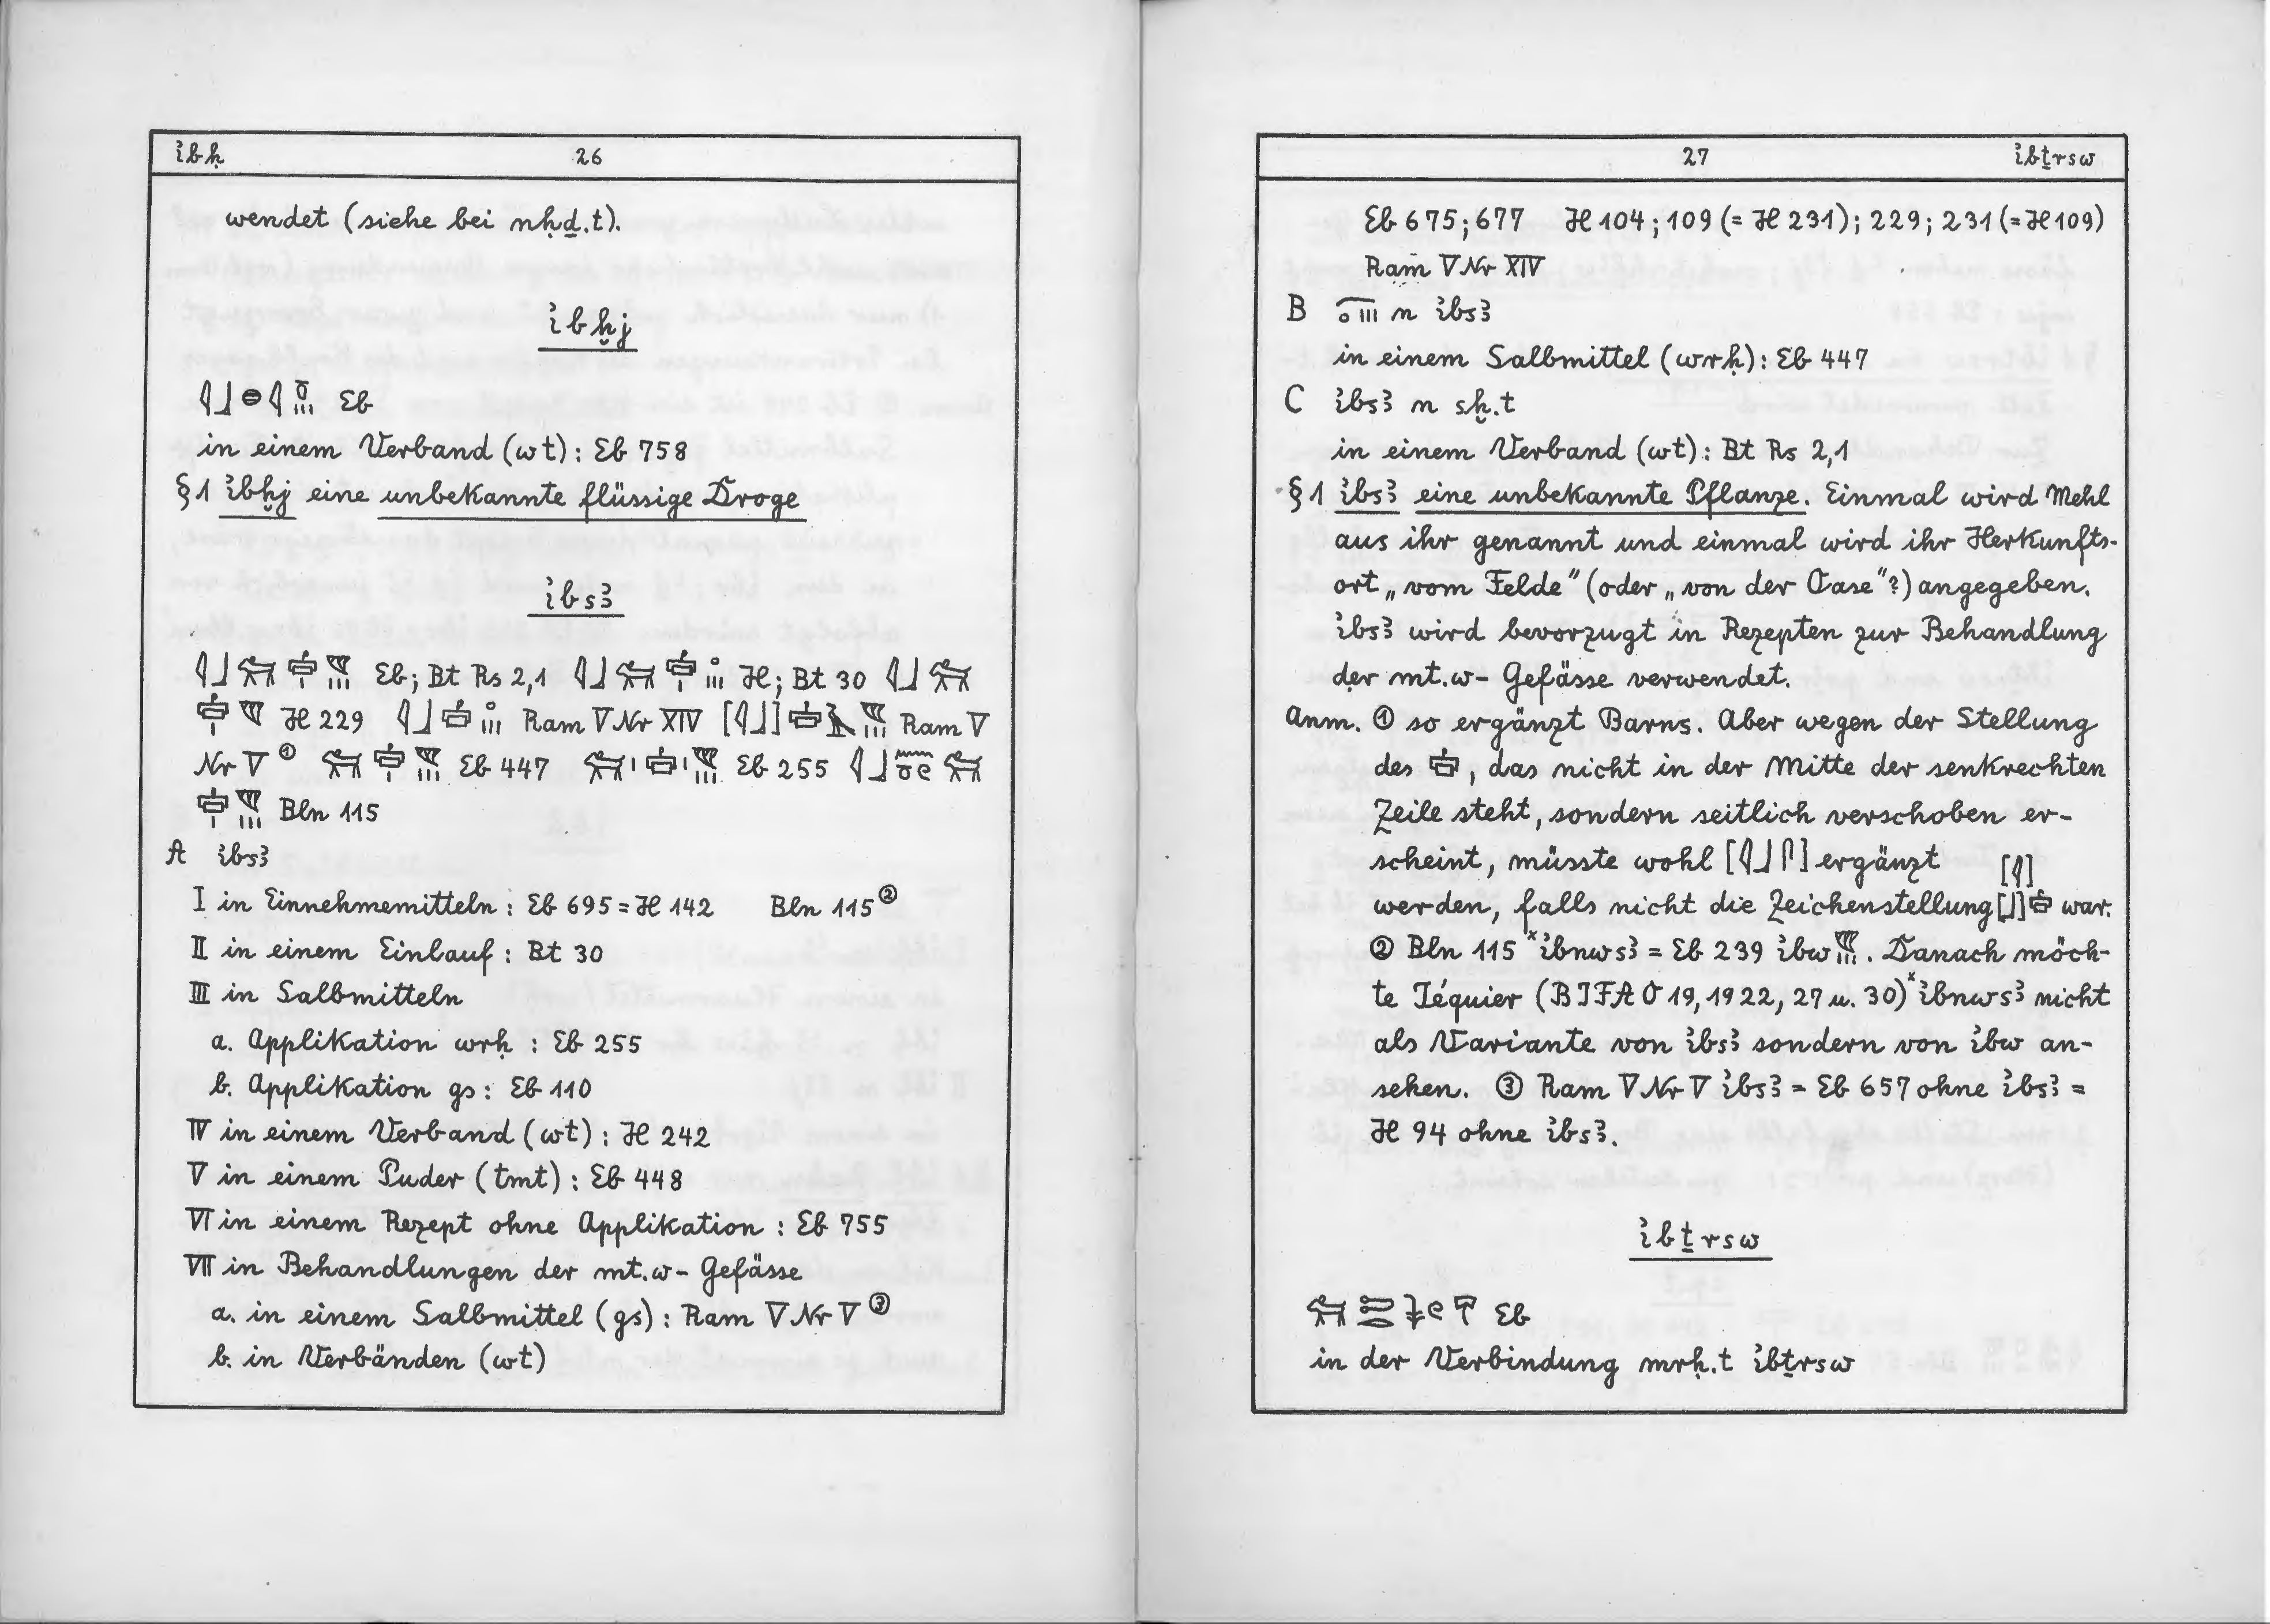 ỉbḥ 26
wendet (siehe bei nḥḏ.t).
ỉbḫj
𓇋𓃀𓐍𓇋 Eb
in einem Verband (wt): Eb 758
§1 ỉbḫj eine unbekannte flüssige Droge
ỉbsꜣ
Eb; Bt Rs 2,1 H; Bt 30
H 229 Ram V Nr XIV Ram V
Nr V ① Eb 447 Eb 255
Bln 115
A ỉbsꜣ
I in Einnehmemitteln: Eb 695 = H 142 Bln 115 ②
II in einem Einlauf: Bt 30
III in Salbmitteln
a. Applikation wrḥ : Eb 255
b. Applikation gs: Eb 110
IV in einem Verband (wt): H 242
V in einem Puder (tmt): Eb 448
VI in einem Rezept ohne Applikation : Eb 755
VII in Behandlungen der mt.w-Gefässe
a. in einem Salbmittel (gs): Ram V Nr V ③
b. in Verbänden (wt)
27 ỉbṯrsw
Eb 675; 677 H 104; 109 (= H 231); 229; 231 (= H 109)
Ram V Nr XIV
B n ỉbsꜣ
in einem Salbmittel (wrḥ): Eb 447
C ỉbsꜣ n sḫ.t
in einem Verband (wt): Bt Rs 2,1
§1 ỉbsꜣ eine unbekannte Pflanze. Einmal wird Mehl
aus ihr genannt und einmal wird ihr Herkunfts-
ort „vom Felde" (oder „von der Oase"?) angegeben.
ỉbsꜣ wird bevorzugt in Rezepten zur Behandlung
der mt.w-Gefässe verwendet.
Anm. ① so ergänzt Barns. Aber wegen der Stellung
des , das nicht in der Mitte der senkrechten
Zeile steht, sondern seitlich verschoben er-
scheint, müsste wohl [𓇋𓃀𓋴] ergänzt
werden, falls nicht die Zeichenstellung [𓇋] [𓃀] war.
② Bln 115 ˣỉbnwsꜣ = Eb 239 ỉbw . Danach möch-
te Jéquier (BIFAO 19, 1922, 27 u. 30) ˣỉbnwsꜣ nicht
als Variante von ỉbsꜣ sondern von ỉbw an-
sehen. ③ Ram V Nr V ỉbsꜣ = Eb 657 ohne ỉbsꜣ =
H 94 ohne ỉbsꜣ.
ỉbṯrsw
Eb
in der Verbindung mrḥ.t ỉbṯrsw